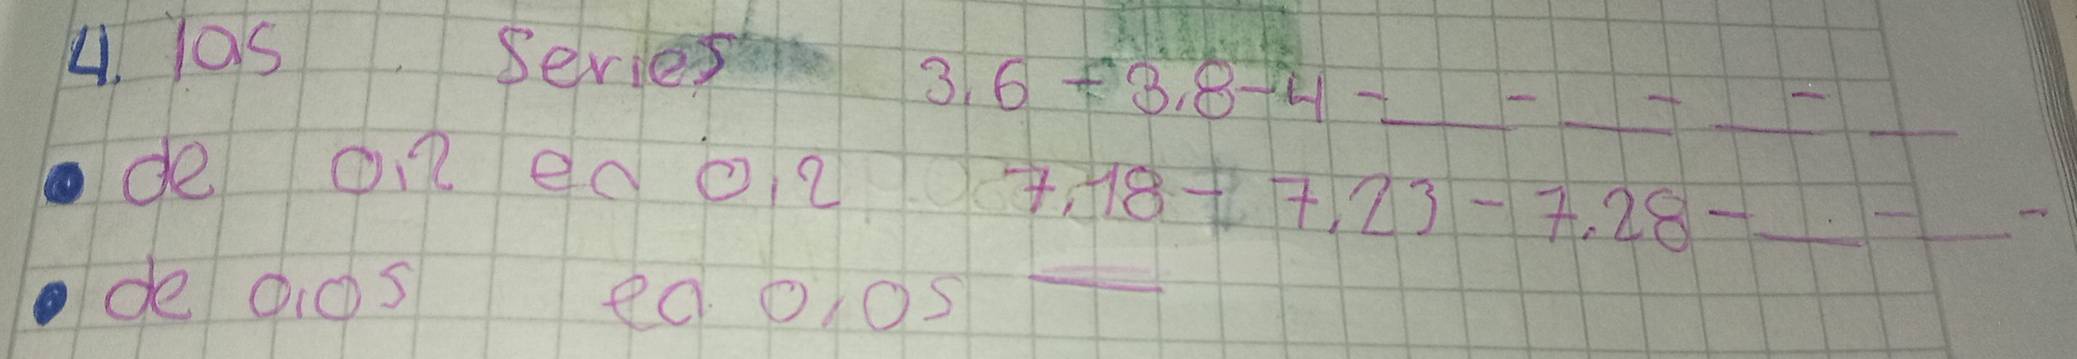 4. las series 3,6 - 3,8 - 4 - ___ - ___ - ___ - ___
• de 0,2 en 0,2 7,18 - 7,23 - 7,28 - ___ - ___ -
• de 0,05 en 0,05 ___